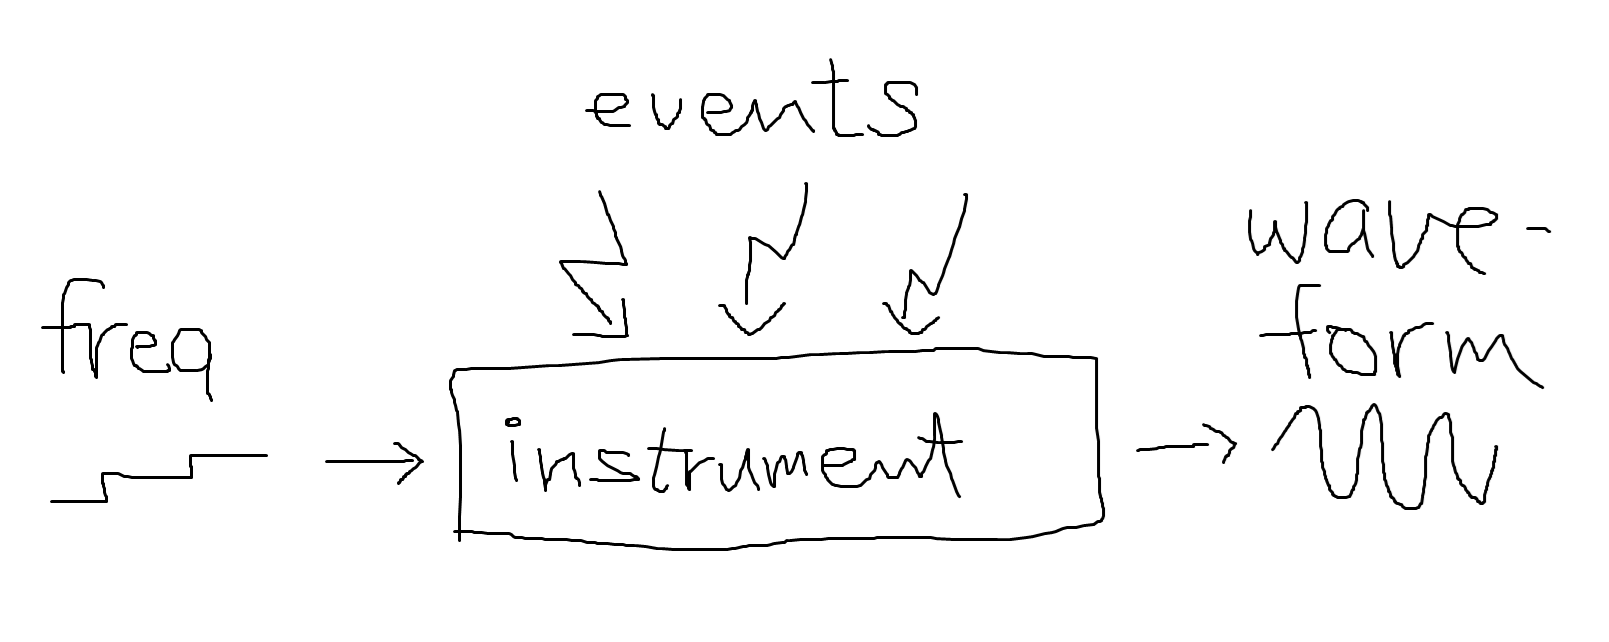 events
freq
instrument
wave-
form